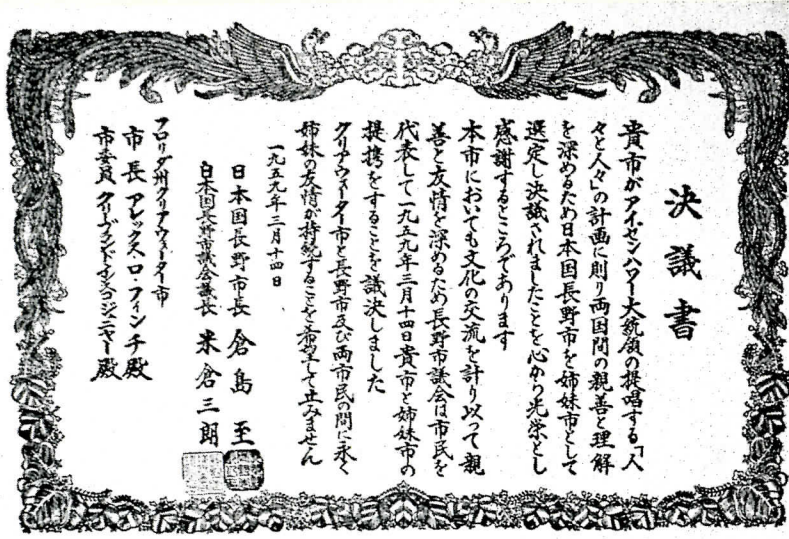 決議書
貴市がアイゼンハワー大統領の提唱する「人
々と人々」の計画に則り両国間の親善と理解
を深めるため日本国長野市を姉妹市として
選定し決議されましたことを心から光栄とし
感謝するところであります
本市においても文化の交流を計り以って親
善と友情を深めるため長野市議会は市民を
代表して一九五九年三月十四日貴市と姉妹市の
提携をすることを議決しました
クリアウォーター市と長野市及び両市民の間に永く
姉妹の友情が持続することを希望して止みません
一九五九年三月十四日
日本国長野市長 倉島 至
日本国長野市議会議長 米倉三朗
フロリダ州クリアウォーター市
市長 アレックス・ロ・フィンチ殿
市委員 殿